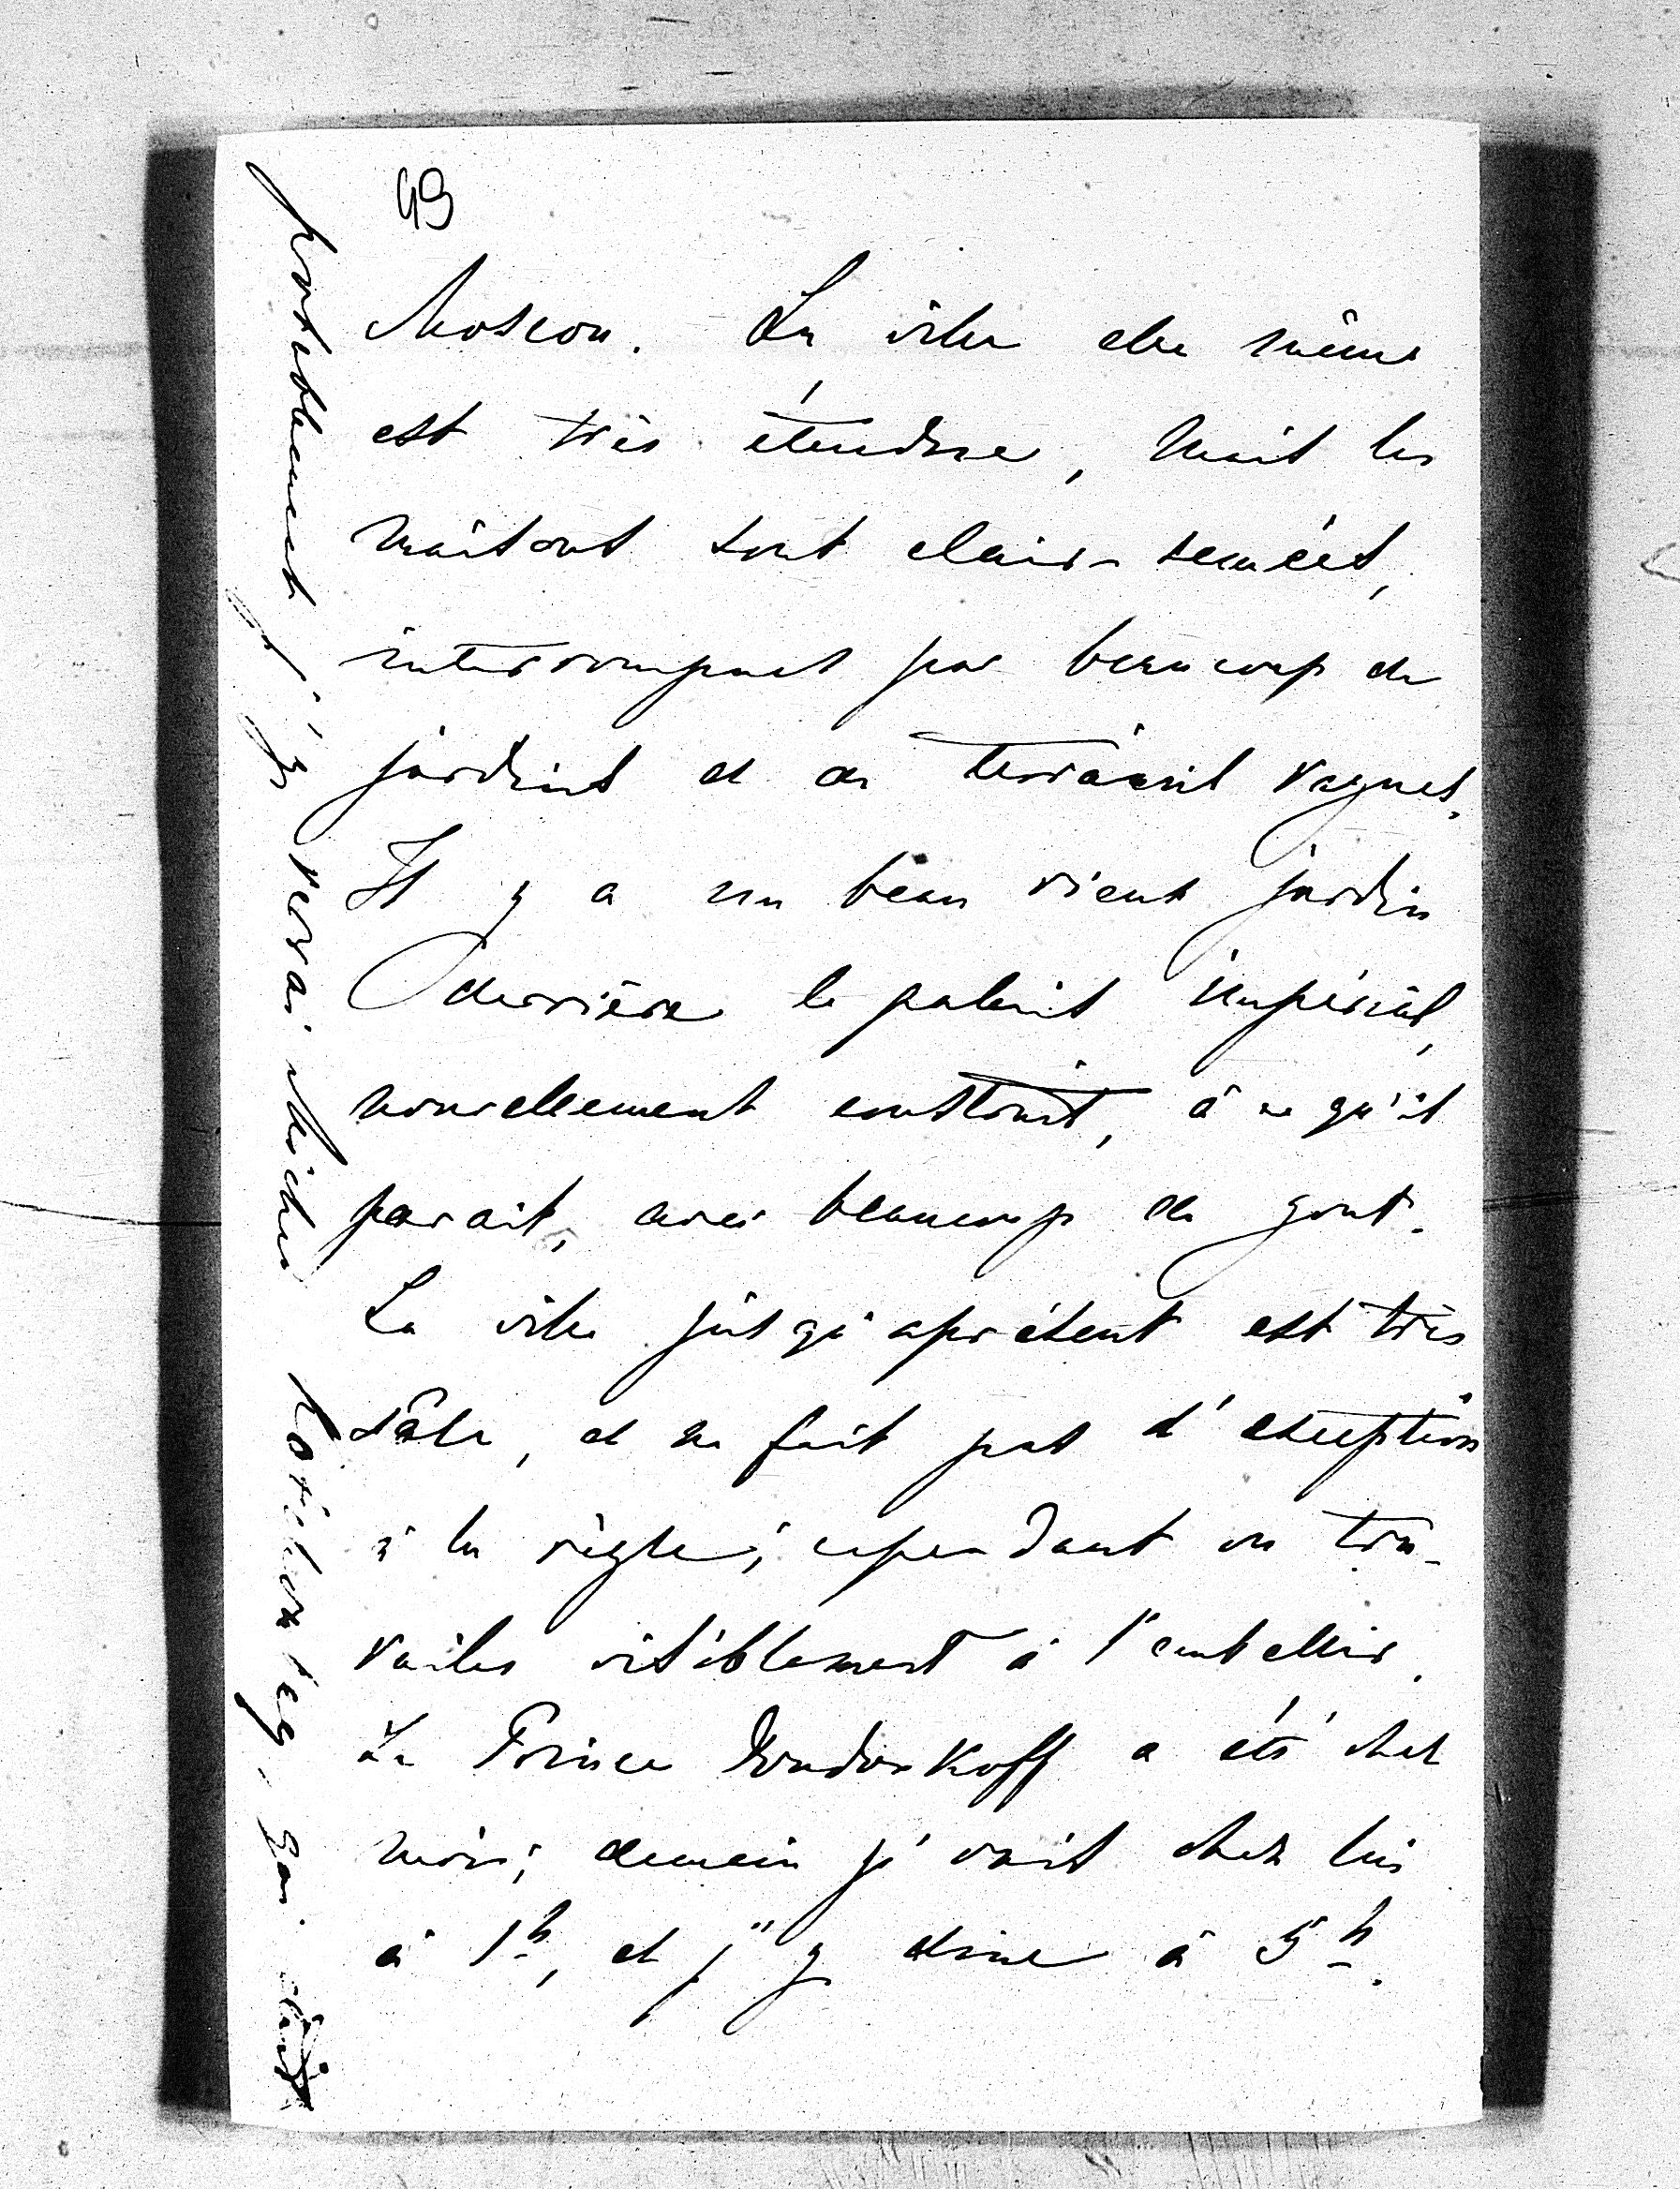 49
Moscou. La ville elle même
est très étendue, mais les
maisons sont clair-semées,
interrompues par beaucoup de
jardins et de terrains vagues.
Il y a un beau vieux jardin
derrière le palais impérial,
nouvellement construit, à ce qu'il
parait, avec beaucoup de gout.
La ville jusqu'aprésent est très
sâle, et ne fait pas d'exception
à la règle; cependant on tra-
vaille visiblement à l'embellir.
Le Prince Dondoukoff a été chez
moi; demain je vais chez lui
à 1h, et j'y dine à 5h.
probablement j'y verrai Michel